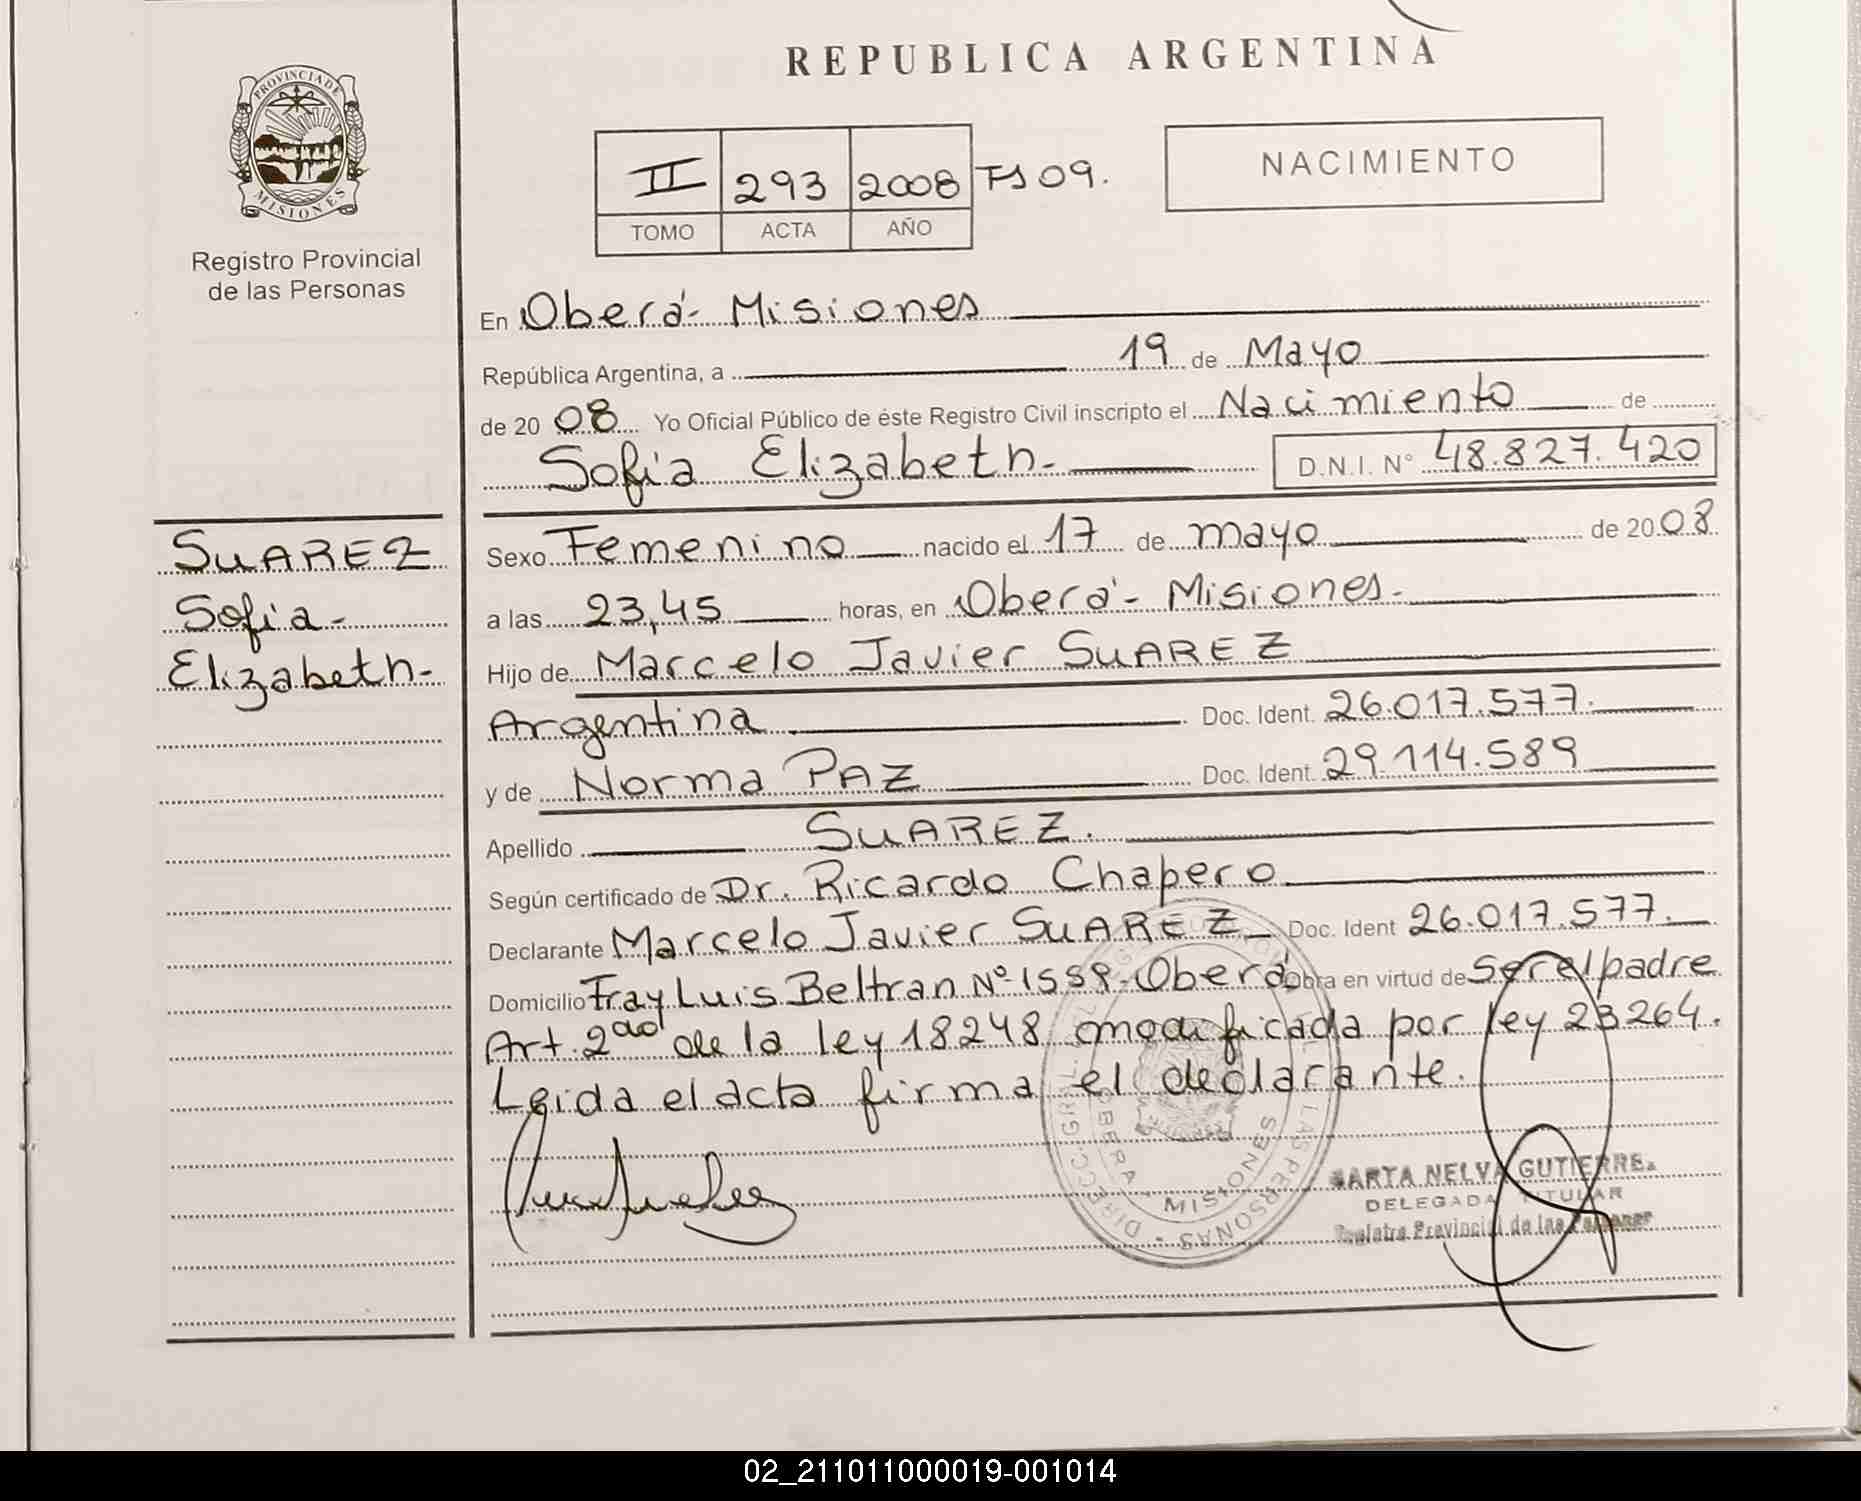 REPUBLICA ARGENTINA
PROVINCIA DE
MISIONES
Registro Provincial
de las Personas
II 293 2008 Fs 09.
TOMO ACTA AÑO
NACIMIENTO
En Oberá - Misiones
República Argentina, a 19 de Mayo
de 2008 Yo Oficial Público de éste Registro Civil inscripto el Nacimiento de
Sofia Elizabeth- D.N.I. N° 48.827.420
SUAREZ
Sofia-
Elizabeth-
Sexo Femenino nacido el 17 de mayo de 2008.
a las 23,45 horas, en Oberá - Misiones.
Hijo de Marcelo Javier SUAREZ
Argentina Doc. Ident. 26.017.577.
y de Norma PAZ Doc. Ident. 29.114.589
Apellido SUAREZ.
Según certificado de Dr. Ricardo Chapero
Declarante Marcelo Javier SUAREZ Doc. Ident 26.017.577.
Domicilio Fray Luis Beltran Nº Oberá Obra en virtud de ser el padre
Art. 2do de la ley 18248 modificada por ley 23264.
Leida el acta firma el declarante.
LAS PERSONAS
OBERA MISIONES
NELVA GUTIERRE
DELEGADA TITULAR
Registro Provincial de las Personas
02_211011000019-001014